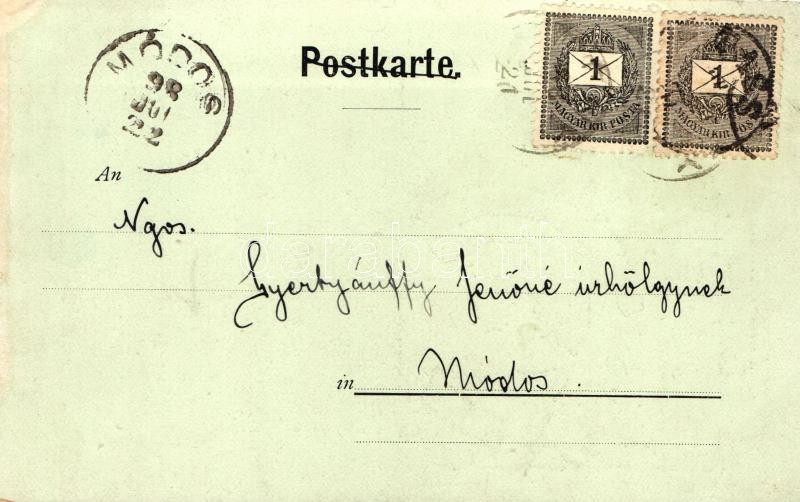 Postkarte.
MÓDOS
98
22
1
MAGYAR KIR. POSTA
1
MAGYAR KIR. POSTA
An
Ngos.
Gyertyánffy Jenőné úrhölgynek
in Módos.
darabanth